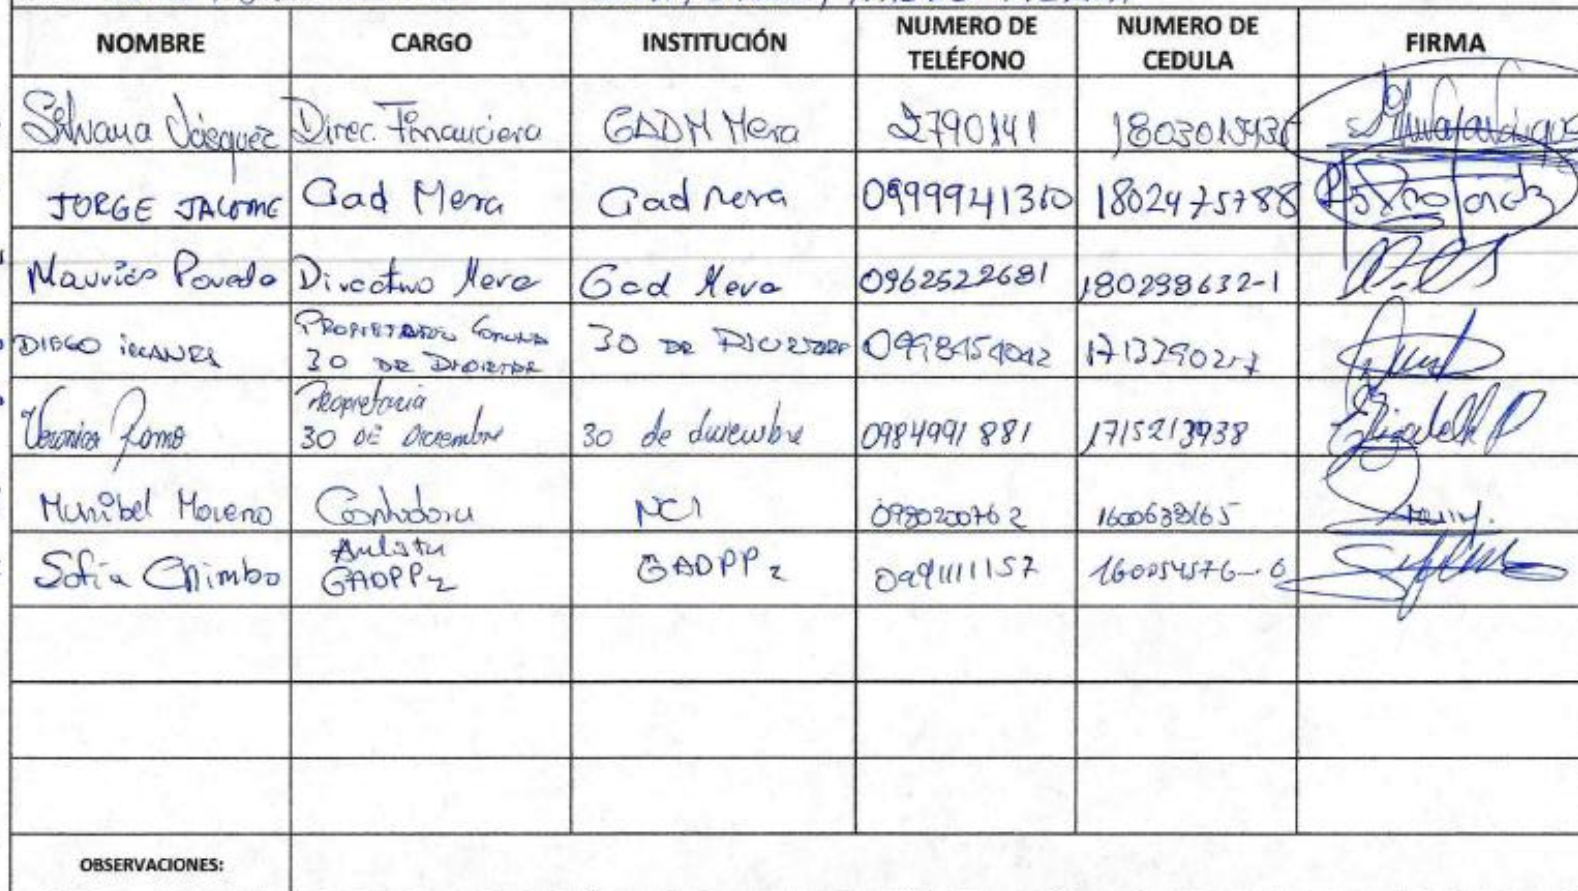 NOMBRE CARGO INSTITUCIÓN NUMERO DE TELÉFONO NUMERO DE CEDULA FIRMA
Silvana Vásquez Direc. Financiera GADM Mera 2790141
JORGE JALOME Gad Mera Gad Mera 0999941360 1802475788
Mauricio Poveda Directivo Mera Gad Mera 0962522681 180298632-1
DIEGO 30 DE DICIEMBRE 30 DE DICIEMBRE
Veronica Romo Propietaria 30 DE Diciembre 30 de diciembre 0984991881 1715213938
Maribel Moreno Contadora NCI 0980200762 1600638165
Sofia Chimbo GADPPz GADPPz 0991111157
OBSERVACIONES: